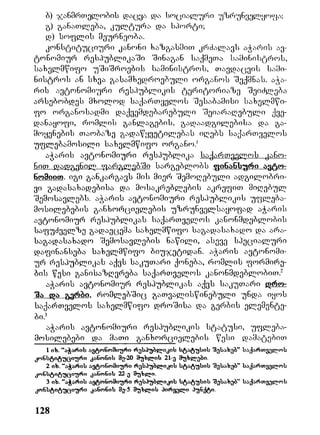 ბ) ჯანმრთელობის დაცვა და სოციალური უზრუნველყოფა;
გ) განათლება, კულტურა და სპორტი;
დ) სოფლის მეურნეობა.
კონსტიტუციური კანონი ხაზგასმით კრძალავს აჭარის ავ-
ტონომიურ რესპუბლიკაში შინაგან საქმეთა სამინისტროს,
სახელმწიფო უშიშროების სამინისტროს, თავდაცვის სამი-
ნისტროს ან სხვა გასამხედროებული ორგანოს შექმნას. აჭა-
რის ავტონომიური რესპუბლიკის ტერიტორიაზე შეიძლება
არსებობდეს მხოლოდ საქართველოს შესაბამისი სახელმწი-
ფო ორგანოსადმი დაქვემდებარებული შეიარაღებული ქვე-
დანაყოფი, რომლის განლაგების, გადაადგილებისა და გა-
მოყენების თაობაზე გადაწყვეტილებას იღებს საქართველოს
უფლებამოსილი სახელმწიფო ორგანო.¹
აჭარის ავტონომიური რესპუბლიკა საქართველოს კანო-
ნით დადგენილ ფარგლებში სარგებლობს ფინანსური ავტო-
ნომიით. იგი განკარგავს მის მიერ შემოღებული ადგილობრი-
ვი გადასახადებისა და მოსაკრებლების აკრეფით მიღებულ
შემოსავლებს. აჭარის ავტონომიური რესპუბლიკის უფლება-
მოსილებების განხორციელების უზრუნველსაყოფად აჭარის
ავტონომიურ რესპუბლიკას საქართველოს კანონმდებლობის
საფუძველზე გადაეცემა სახელმწიფო საგადასახადო და არა-
საგადასახადო შემოსავლების ნაწილი, ასევე სპეციალური
დაფინანსება სახელმწიფო ბიუჯეტიდან. აჭარის ავტონომი-
ურ რესპუბლიკას აქვს საკუთარი ქონება, რომლის ფორმირე-
ბის წესი განისაზღვრება საქართველოს კანონმდებლობით.²
აჭარის ავტონომიურ რესპუბლიკას აქვს საკუთარი დრო-
შა და გერბი, რომლებშიც გათვალისწინებული უნდა იყოს
საქართველოს სახელმწიფო დროშისა და გერბის ელემენტე-
ბი.³
აჭარის ავტონომიური რესპუბლიკის სტატუსი, უფლება-
მოსილებები და მათი განხორციელების წესი დამატებით
1 იხ. "აჭარის ავტონომიური რესპუბლიკის სტატუსის შესახებ" საქართველოს
კონსტიტუციური კანონის მე-20 მუხლის 21-ე მუხლები.
2 იხ. "აჭარის ავტონომიური რესპუბლიკის სტატუსის შესახებ" საქართველოს
კონსტიტუციური კანონის 22-ე მუხლი.
3 იხ. "აჭარის ავტონომიური რესპუბლიკის სტატუსის შესახებ" საქართველოს
კონსტიტუციური კანონის მე-5 მუხლის პირველი პუნქტი.
128